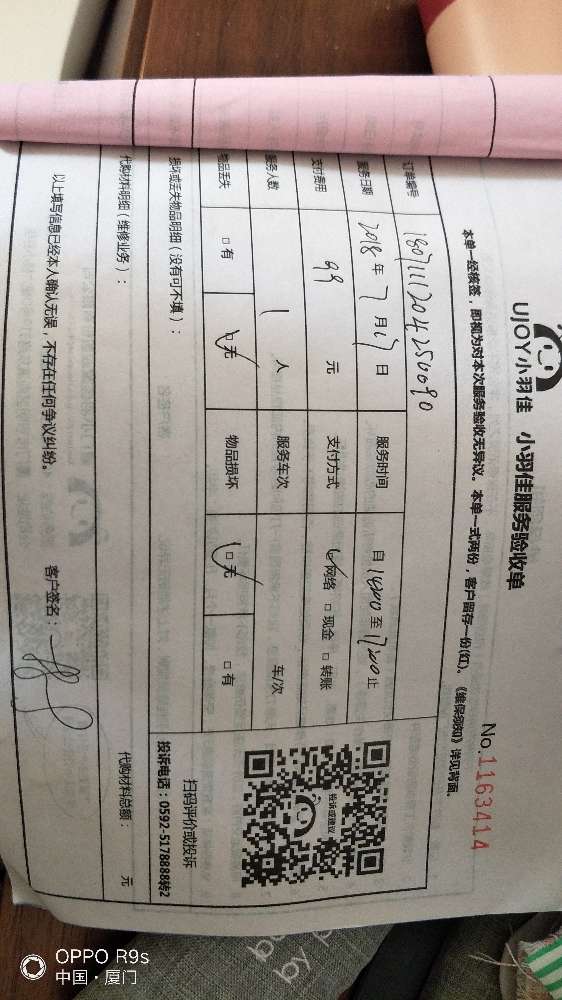 UJOY小羽佳 小羽佳服务验收单
No.1163414
本单一经核签，即视为对本次服务验收无异议。本单一式两份，客户留存一份(红)。《维保须知》详见背面。
订单编号 1807111204250090
服务日期 2018年7月17日 服务时间 自14:00至17:00止
支付费用 99元 支付方式 ☑网络 □现金 □转账
服务人数 1人 服务车次 车/次
物品丢失 □有 ☑无 物品损坏 ☑无 □有
损坏或丢失物品明细（没有可不填）：
代购材料明细（维修业务）： 代购材料总额： 元
以上填写信息已经本人确认无误，不存在任何争议纠纷。 客户签名：
投诉或建议
扫码评价或投诉
投诉电话：0592-5178888转2
OPPO R9s
中国·厦门